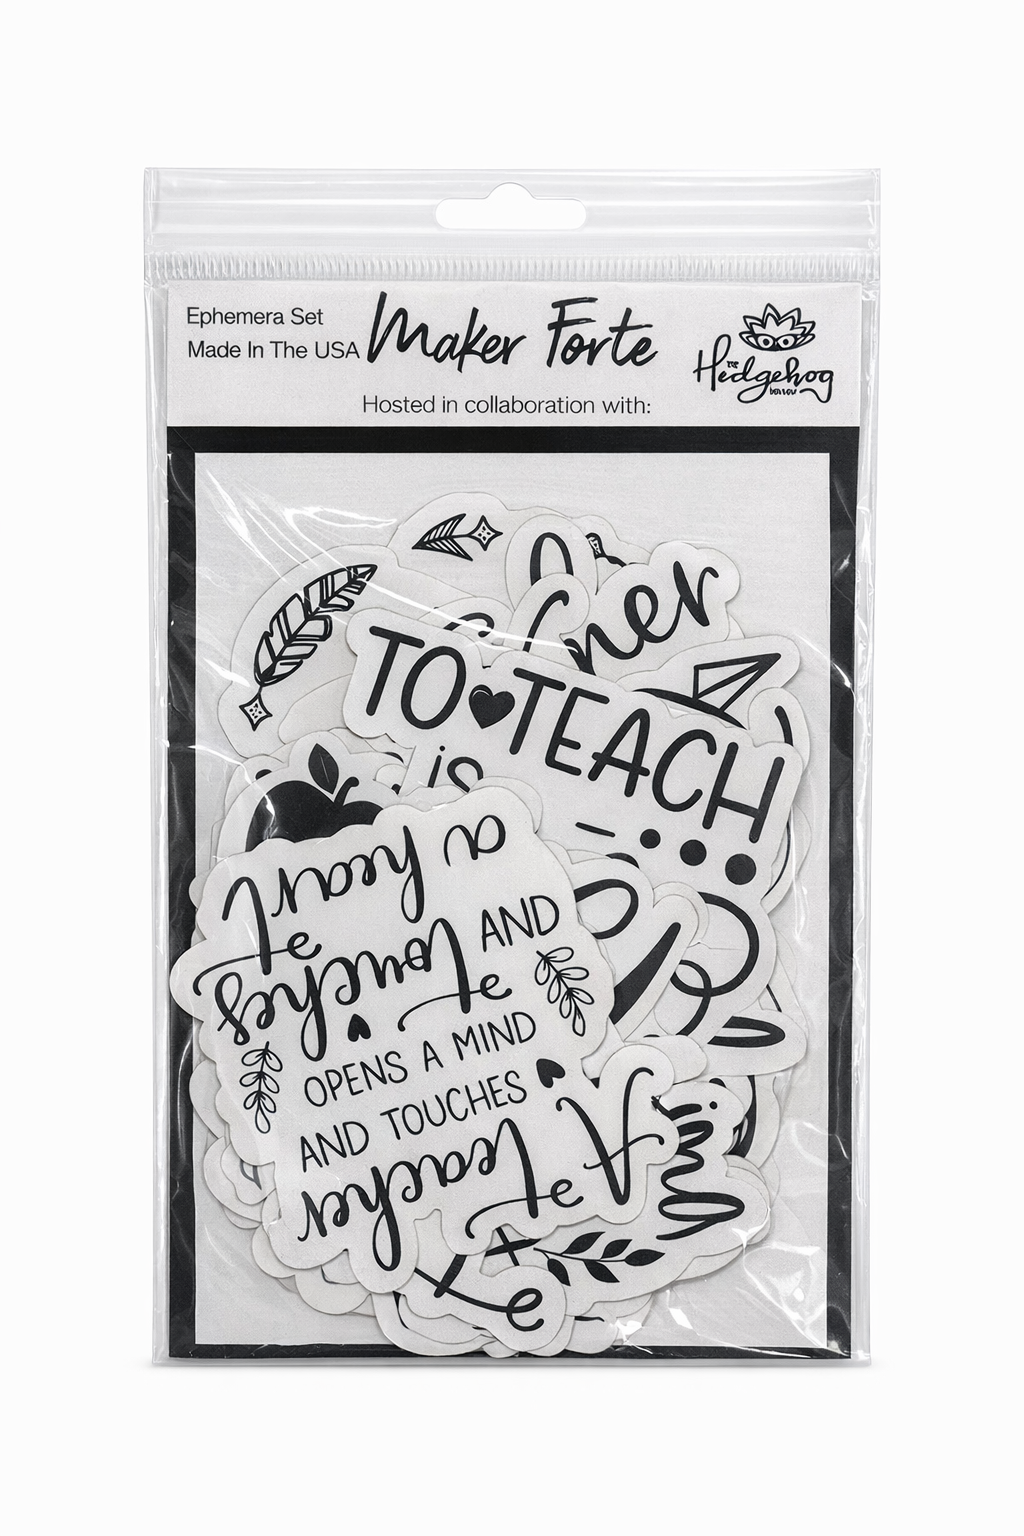 Ephemera Set
Made In The USA
Maker Forte
Hedgehog
Hosted in collaboration with:
ner
TO TEACH
is
a heart
AND
touches
OPENS A MIND
AND TOUCHES
A teacher